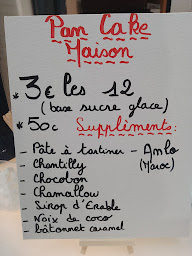 Pan Cake
Maison
* 3€ les 12
(base sucre glace)
* 50c Suppléments:
- Pâte à tartiner - Anlo
(Maroc)
- Chantilly
- Chocobon
- Chamallow
- Sirop d'Erable
- Noix de coco
- bâtonnet caramel